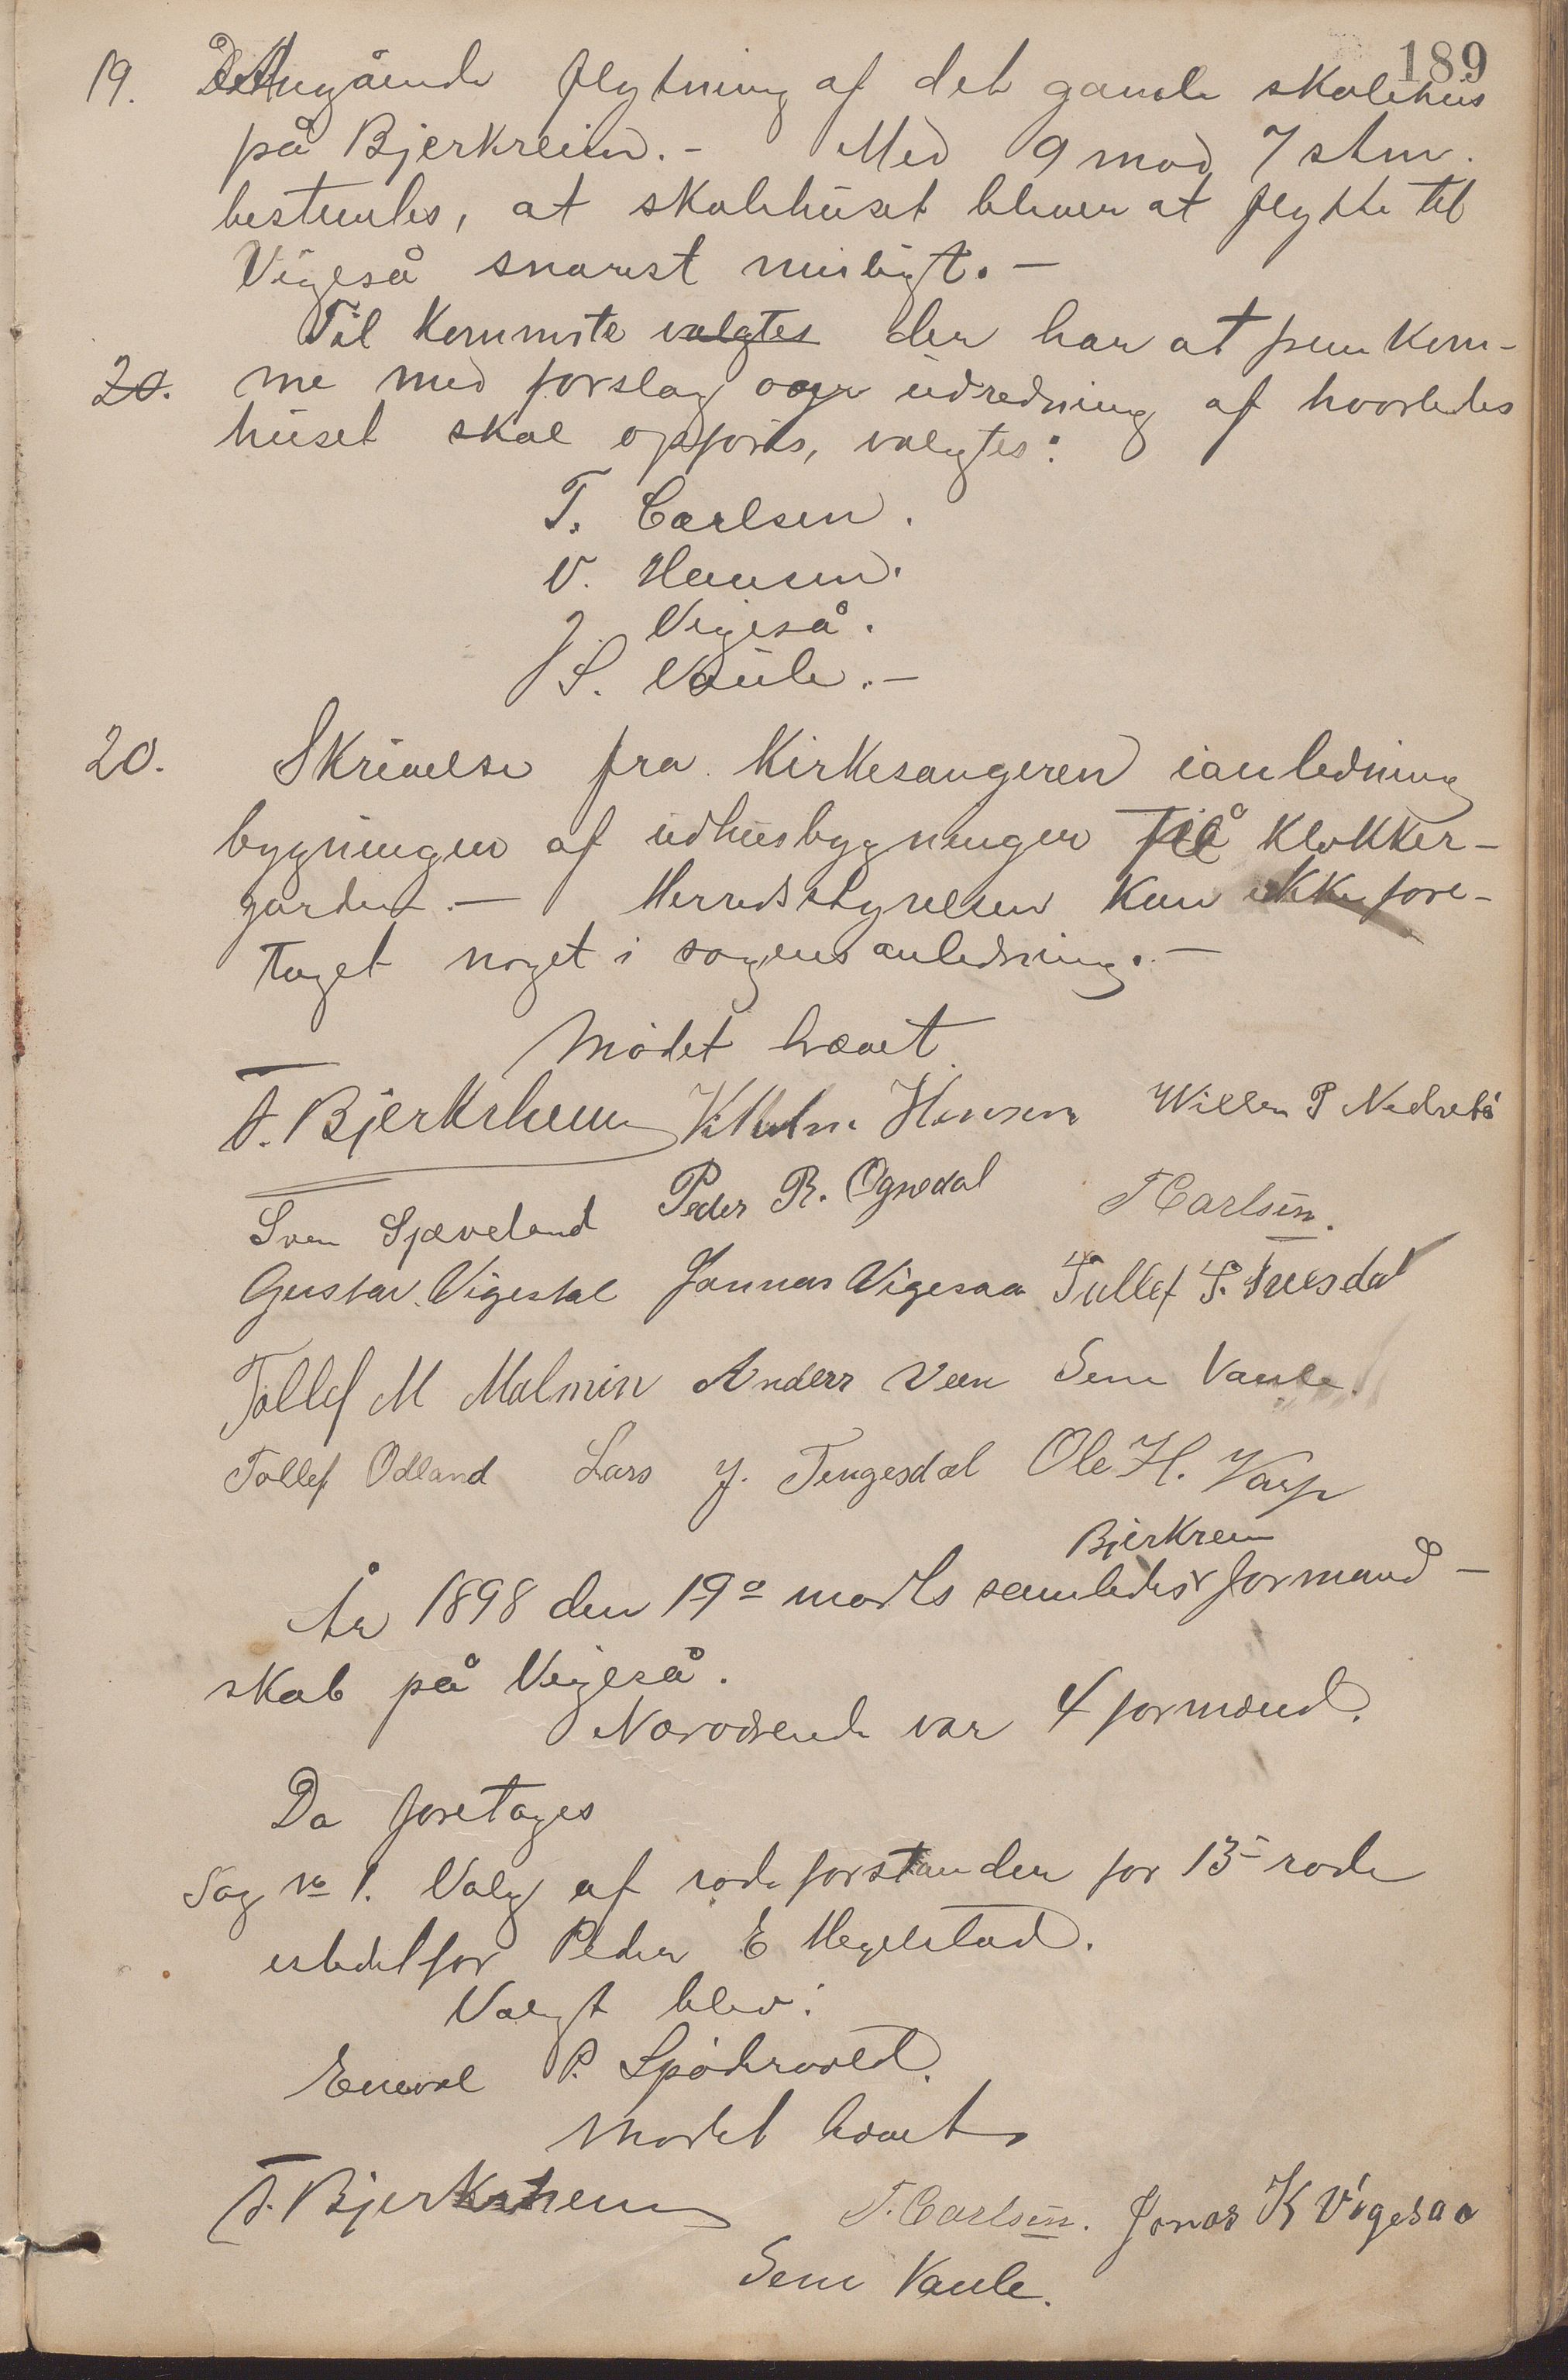 189
19. Angående flytning af det gamle skolehus
på Bjerkreim. - Med 9 mod 7 stm.
bestemtes, at skolehuset bliver at flytte til
Vigeså snarest muligt. -
Til Kommite valgtes der har at frem kom-
20. me med forslag og udredning af hvorledes
huset skal opføres, valgtes:
T. Carlsen.
V. Hansen.
J. Vigeså.
S. Vaule. -
20. Skrivelse fra Kirkesangeren ianledning
bygningen af udhusbygningen på Klokker-
garden. - Herredsstyrelsen kan ikke fore-
taget noget i sagens anledning. -
Mødet hævet
T. Bjerkrheim Vilhelm Hansen Willem P Nedrebø
Sven Sjæveland Peder R. Ognedal T Carlsen.
Gustav Vigestal Jonnas Vigesaa Tollef S.
Tollef M Malmin Anders Veen Sem Vaule.
Tollef Odland Lars J. Tengesdal Ole H. Varp
Bjerkrem
År 1898 den 19º marts samledes formand-
skab på Vigeså.
Nærværende var 4 formænd.
Da foretages
Sag No 1. Valg af rodeforstander for 13- rode
istedetfor Peder E Hegelstad.
Valgt blev:
Eneval P. Spødervold.
Mødet hævet
T. Bjerkrheim T. Carlsen. Jonas K Vigesaa
Sem Vaule.